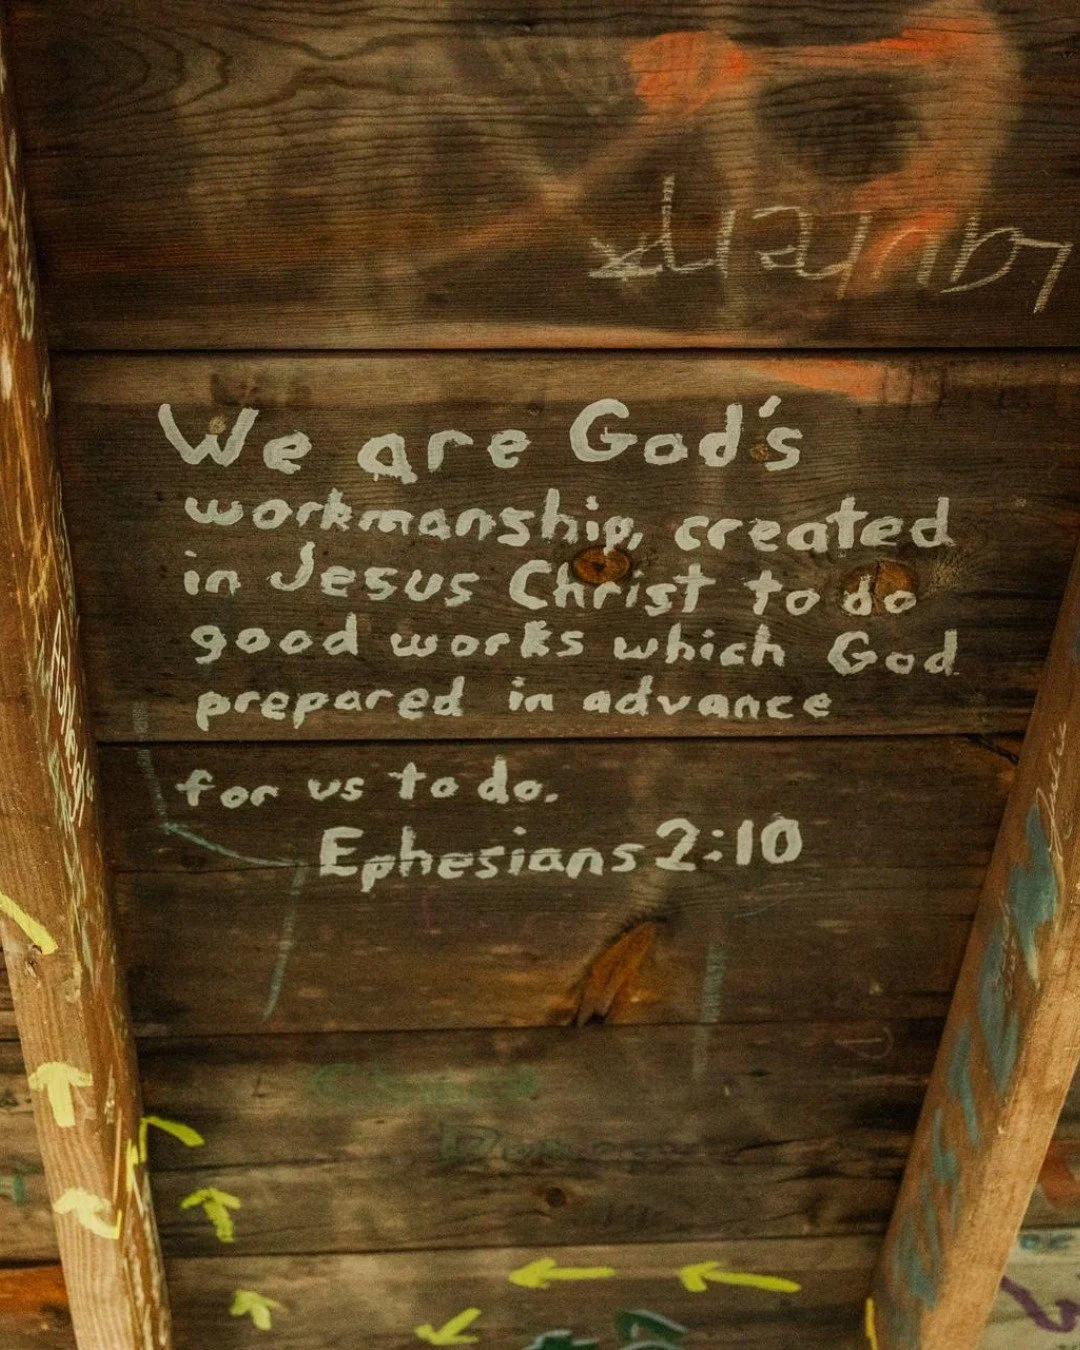 We are God's
workmanship, created
in Jesus Christ to do
good works which God
prepared in advance
for us to do.
Ephesians 2:10